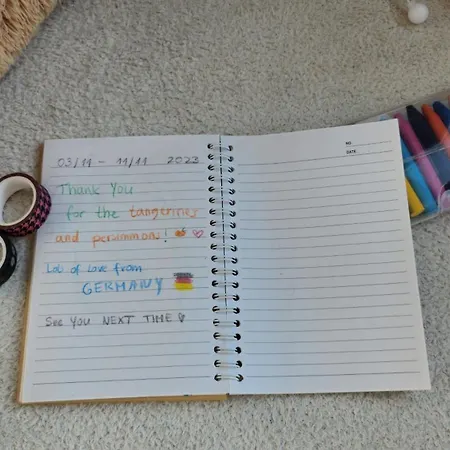 03/11 - 11/11 2023
Thank You
for the tangerines
and persimmons!
Lot of Love from
GERMANY
See You NEXT TIME
NO.
DATE.